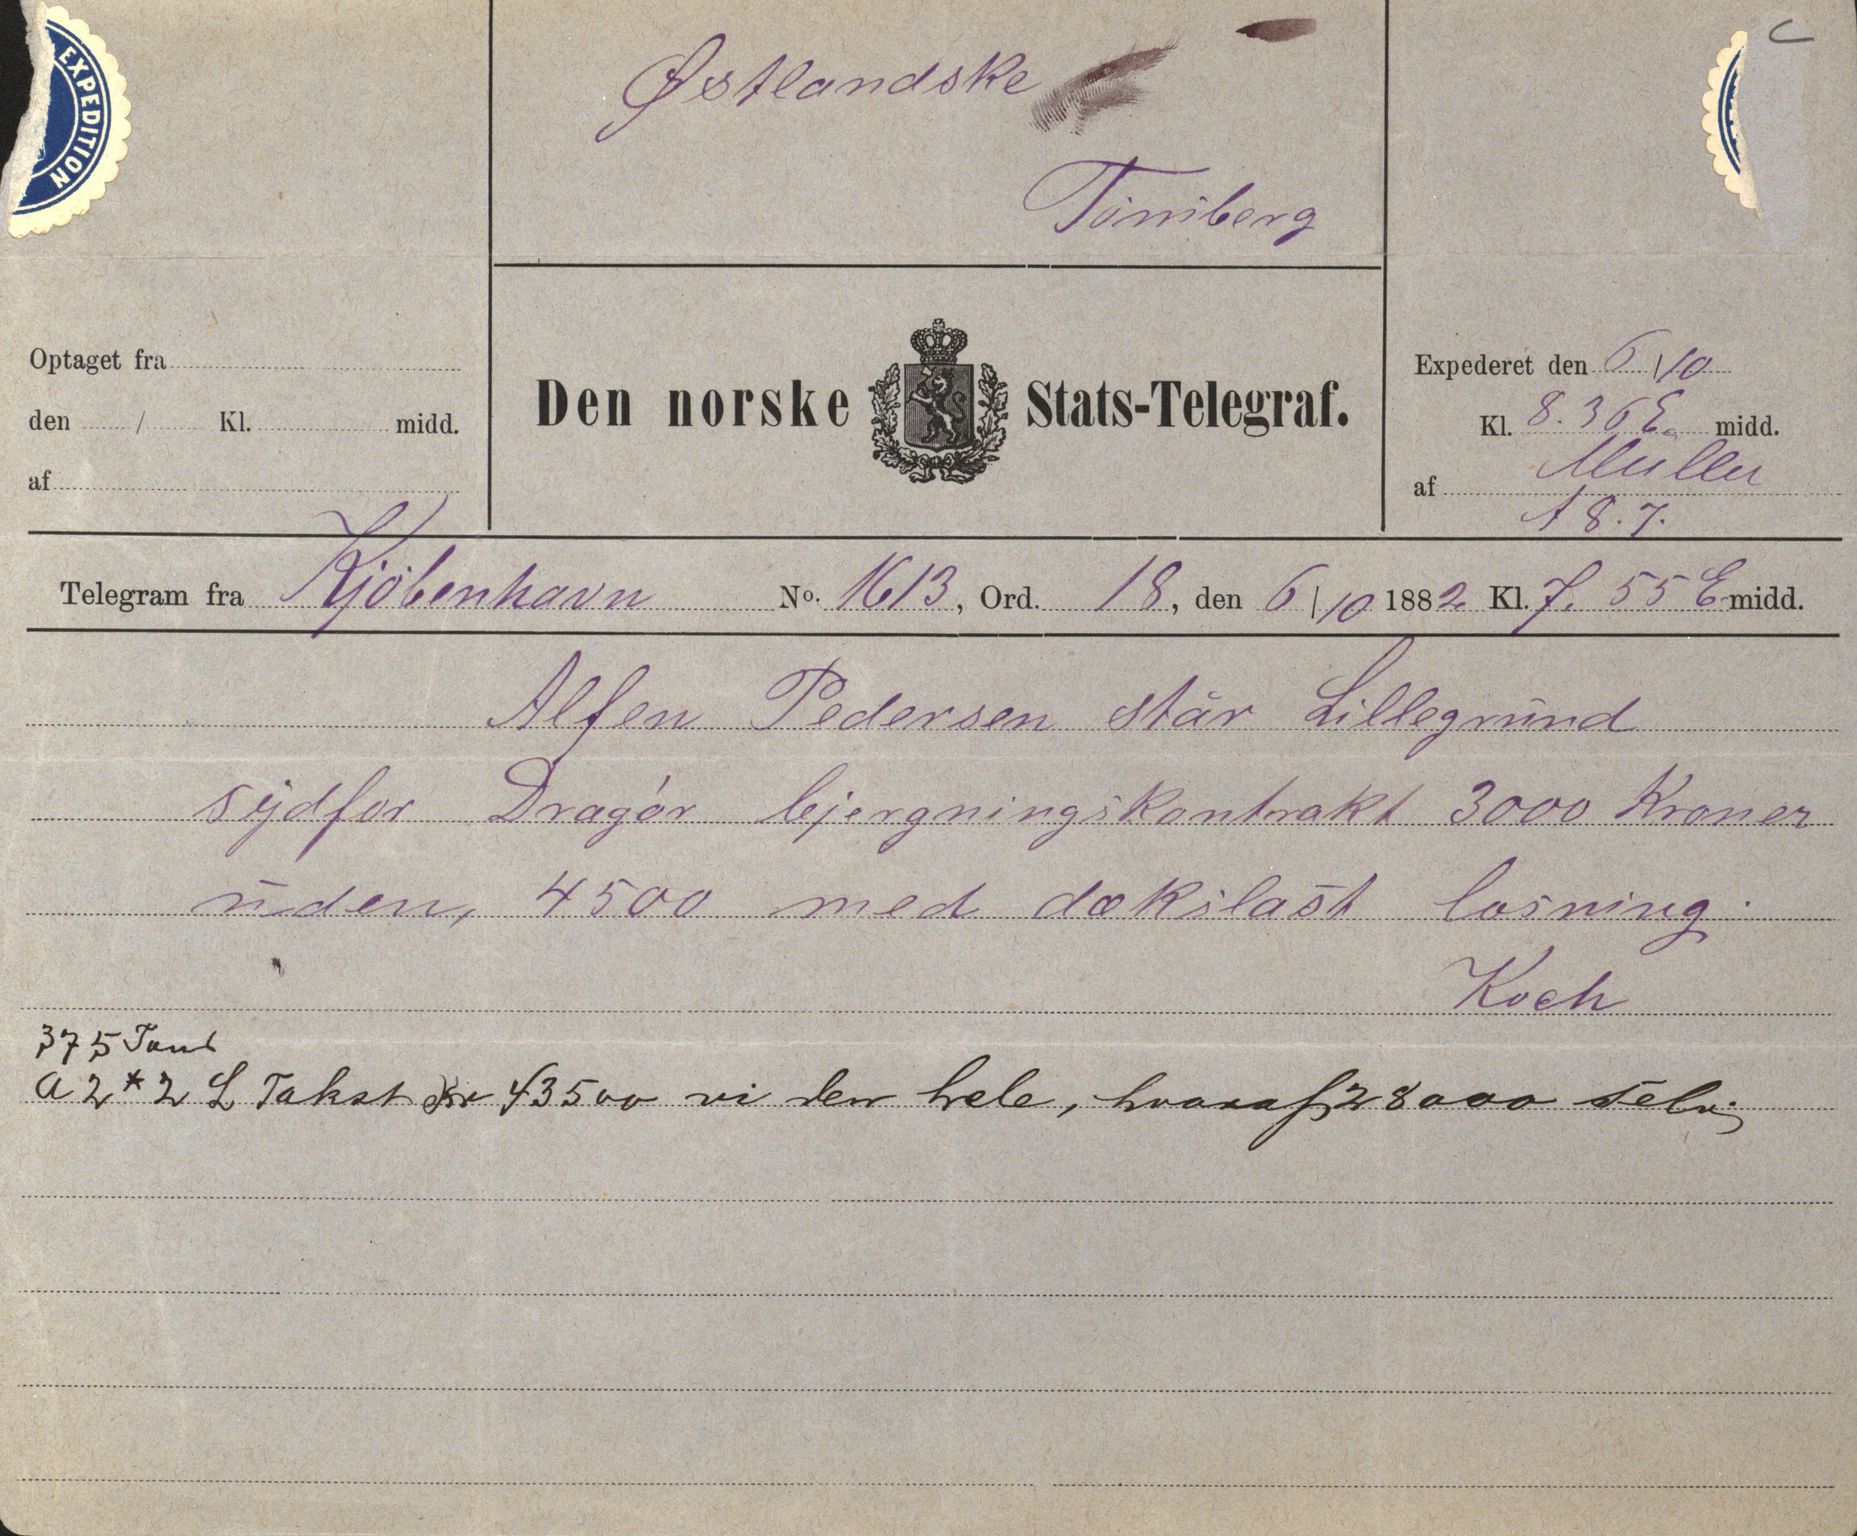 EXPEDITION
C
Østlandske
Tönsberg
Optaget fra
den / Kl. midd.
af
Den norske Stats-Telegraf.
Expederet den 6/10
Kl. 8.36 E. midd.
af Muller
A 8.7.
Telegram fra Kjöbenhavn No. 1613, Ord. 18, den 6/10 1882 Kl. 7.55 E midd.
Alfen Pedersen står Lillegrund
sydfor Dragör bjergningskontrakt 3000 Kroner
uden, 4500 med dækslast losning.
Koch
375 Tons
A 2*2 L Takst Kr 43500 vi den hele, hvoraf 28000 selv.